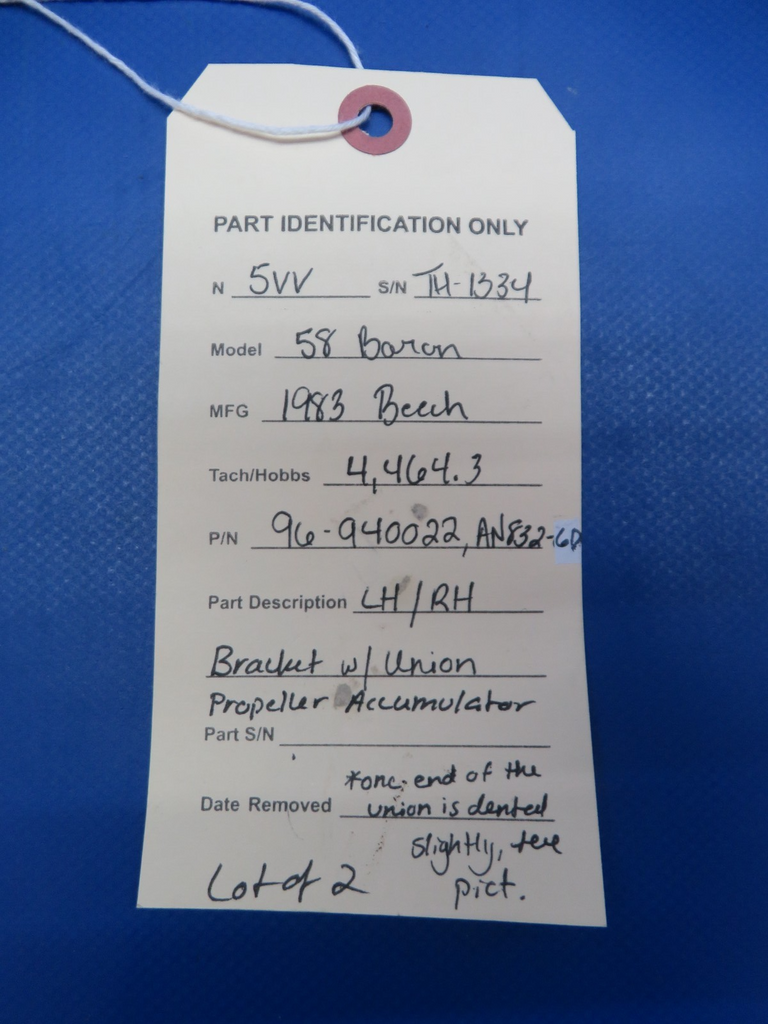 PART IDENTIFICATION ONLY
N 5VV S/N TH-1334
Model 58 Baron
MFG 1983 Beech
Tach/Hobbs 4,464.3
P/N 96-940022, AN832-6D
Part Description LH/RH
Bracket w/ Union
Propeller Accumulator
Part S/N
*one end of the
Date Removed union is dented
slightly, see
Lot of 2 pict.